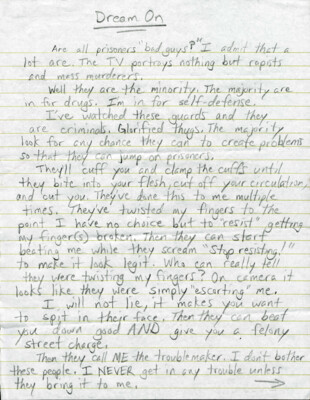 Dream On
Are all prisoners "bad guys?" I admit that a
lot are. The TV portrays nothing but rapists
and mass murderers.
Well they are the minority. The majority are
in for drugs. Im in for self-defense.
I've watched these guards and they
are criminals. Glorified thugs. The majority
look for any chance they can to create problems
so that they can jump on prisoners.
They'll cuff you and clamp the cuffs until
they bite into your flesh, cut off your circulation,
and cut you. They've done this to me multiple
times. They've twisted my fingers to the
point I have no choice but to "resist" getting
my finger(s) broken. Then they can start
beating me while they scream "Stop resisting!"
to make it look legit. Who can really tell
they were twisting my fingers? On camera it
looks like they were simply "escorting" me.
I will not lie, it makes you want
to spit in their face. Then they can beat
you down good AND give you a felony
street charge.
Then they call ME the troublemaker. I don't bother
these people. I NEVER get in any trouble unless
they bring it to me. →